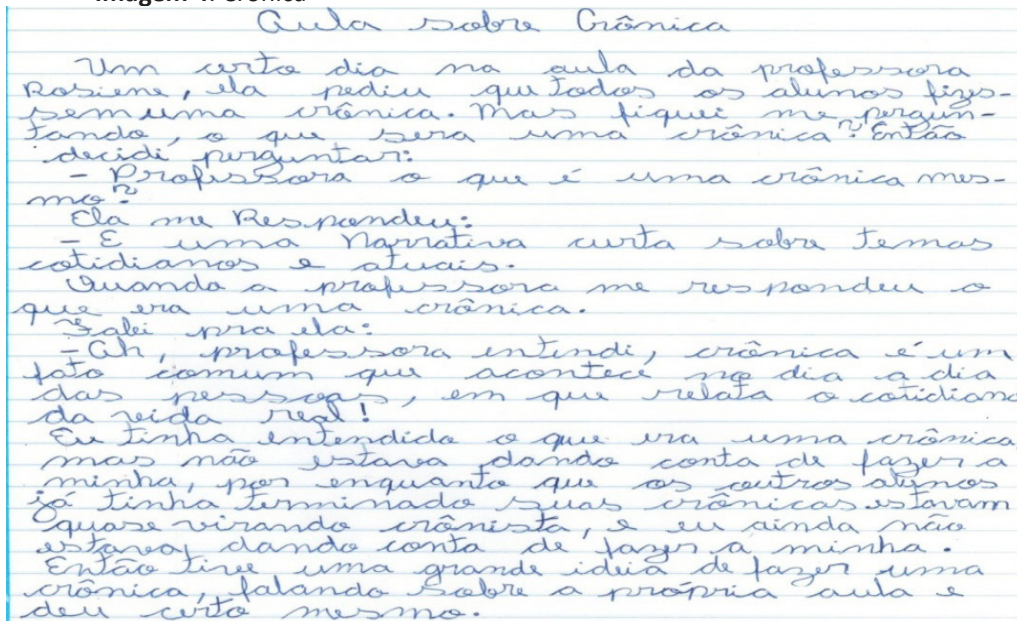 Imagem 1: Crônica
Aula sobre Crônica
Um certo dia na aula da professora
Rosiene, ela pediu que todos os alunos fizes-
sem uma crônica. Mas fiquei me pergun-
tando, o que sera uma crônica? Então
decidi perguntar:
- Professora o que é uma crônica mes-
mo?
Ela me Respondeu:
- E uma Narrativa curta sobre temas
cotidianos e atuais.
Quando a professora me respondeu o
que era uma crônica.
Falei pra ela:
- Ah, professora entendi, crônica é um
fato comum que acontece no dia a dia
das pessoas, em que relata o cotidiano
da vida real!
Eu tinha entendido o que era uma crônica
mas não estava dando conta de fazer a
minha, por enquanto que os outros alunos
já tinha terminado suas crônicas estavam
quase virando crônista, e eu ainda não
estava, dando conta de fazer a minha.
Então tive uma grande ideia de fazer uma
crônica, falando sobre a própria aula e
deu certo mesmo.